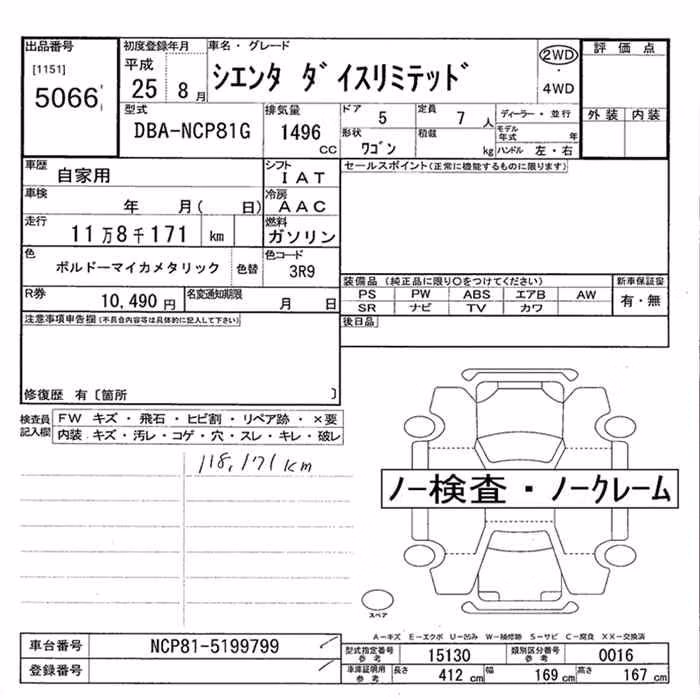 出品番号
[1151]
5066
初度登録年月
平成
25 8月
車名・グレード
シエンタ ダイスリミテッド
2WD
・
4WD
評価点
外装 内装
型式
DBA-NCP81G
排気量
1496
CC
ドア 5
定員 7 人
ディーラー・並行
形状
ワゴン
積載
kg
モデル年式 年
ハンドル 左・右
車歴
自家用
シフト
IAT
セールスポイント(正常に機能するものに限ります)
車検
年 月( 日)
冷房
AAC
走行
11万8千171 km
燃料
ガソリン
色
ボルドーマイカメタリック
色替
色コード
3R9
装備品 (純正品に限り○をつけてください)
新車保証書
PS PW ABS エアB AW
有・無
SR ナビ TV カワ
R券
10,490 円
名変通知期限
月 日
後日品
注意事項申告欄(不具合内容等は具体的に記入して下さい)
修復歴 有〔箇所 〕
検査員記入欄
FW キズ・飛石・ヒビ割・リペア跡・×要
内装 キズ・汚レ・コゲ・穴・スレ・キレ・破レ
118,171km
ノー検査・ノークレーム
スペア
A−キズ E−エクボ U−凹み W−補修跡 S−サビ C−腐食 XX−交換済
車台番号
NCP81-5199799
登録番号
型式指定番号
参考
15130
類別区分番号
参考
0016
車庫証明用
参考
長さ 412 cm
幅 169 cm
高さ 167 cm